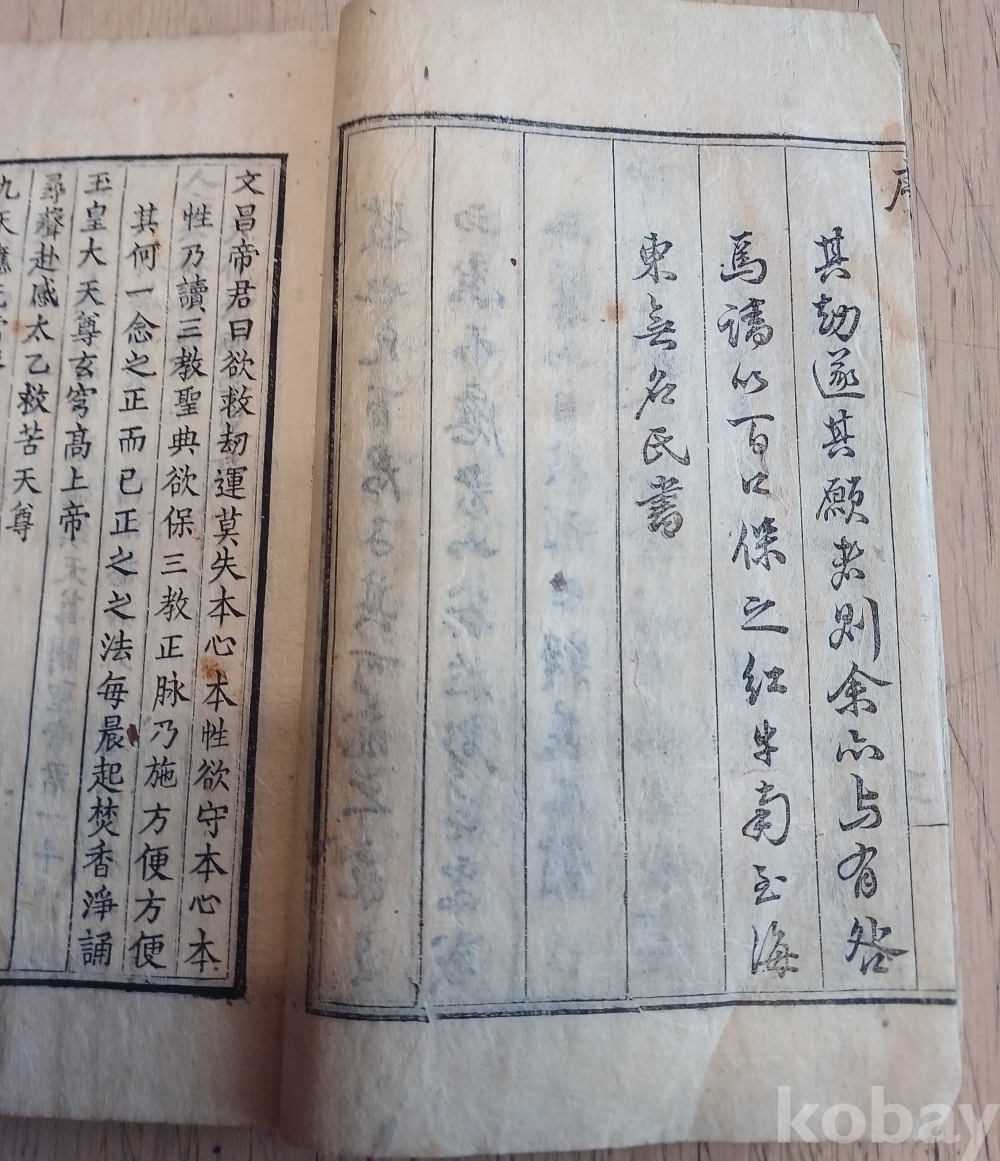 序
其劫遂其願者則余亦与有咎
焉請以百口保之紅牛南至海
東無名氏書
文昌帝君曰欲救劫運莫失本心本性欲守本心本
人性乃讀三教聖典欲保三教正脉乃施方便方便
其何一念之正而已正之之法每晨起焚香淨誦
玉皇大天尊玄穹高上帝
尋聲赴感太乙救苦天尊
九天應元
kobay